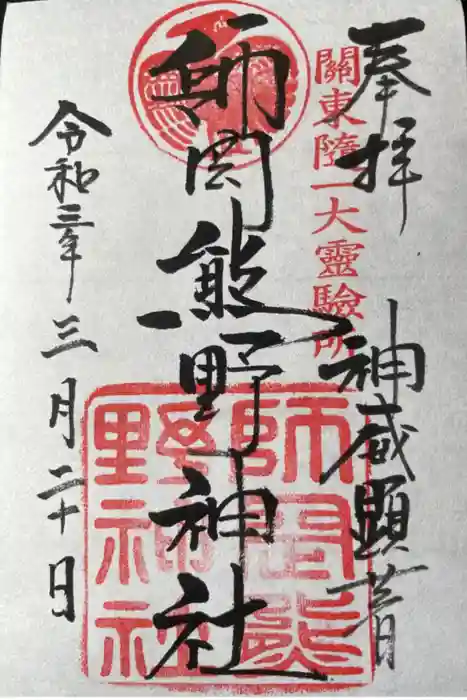 奉拝
神威顕著
關東随一大靈驗所
師岡熊野神社
師岡熊
野神社
令和三年三月二十日